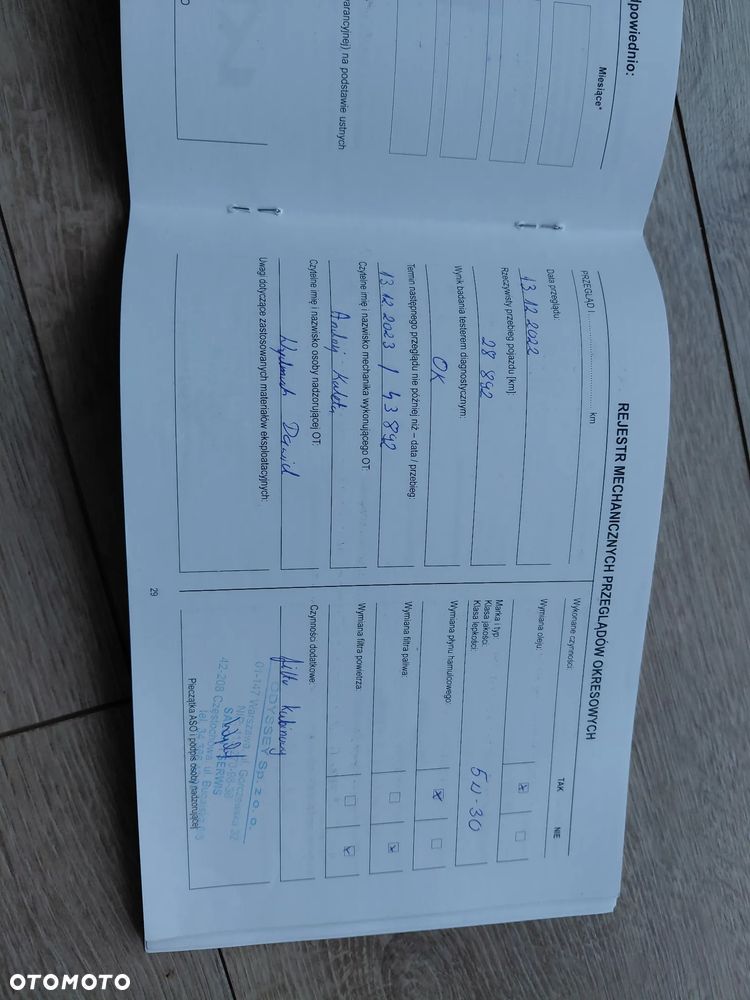 dpowiednio:
Miesiące*
warancyjnej) na podstawie ustnych
REJESTR MECHANICZNYCH PRZEGLĄDÓW OKRESOWYCH
PRZEGLĄD I. km
Data przeglądu:
13.12.2022
Rzeczywisty przebieg pojazdu [km]:
28 892
Wynik badania testerem diagnostycznym:
OK
Termin następnego przeglądu nie później niż – data / przebieg:
13.12.2023 / 43892
Czytelne imię i nazwisko mechanika wykonującego OT:
Czytelne imię i nazwisko osoby nadzorującej OT:
Dawid
Uwagi dotyczące zastosowanych materiałów eksploatacyjnych:
29
Wykonane czynności: TAK NIE
Wymiana oleju:
Marka i typ:
Klasa jakości:
Klasa lepkości: 5W-30
Wymiana płynu hamulcowego:
Wymiana filtra paliwa:
Wymiana filtra powietrza:
Czynności dodatkowe:
filtr kabinowy
ODYSSEY Sp. z o.o.
01-147 Warszawa, ul. Górczewska 32
42-208 Częstochowa, ul.
Pieczątka ASO i podpis osoby nadzorującej
OTOMOTO